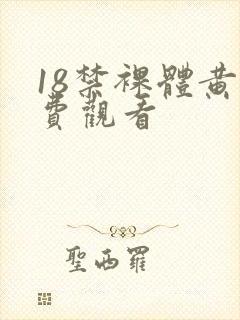 18禁裸體黄
費觀看
聖西羅